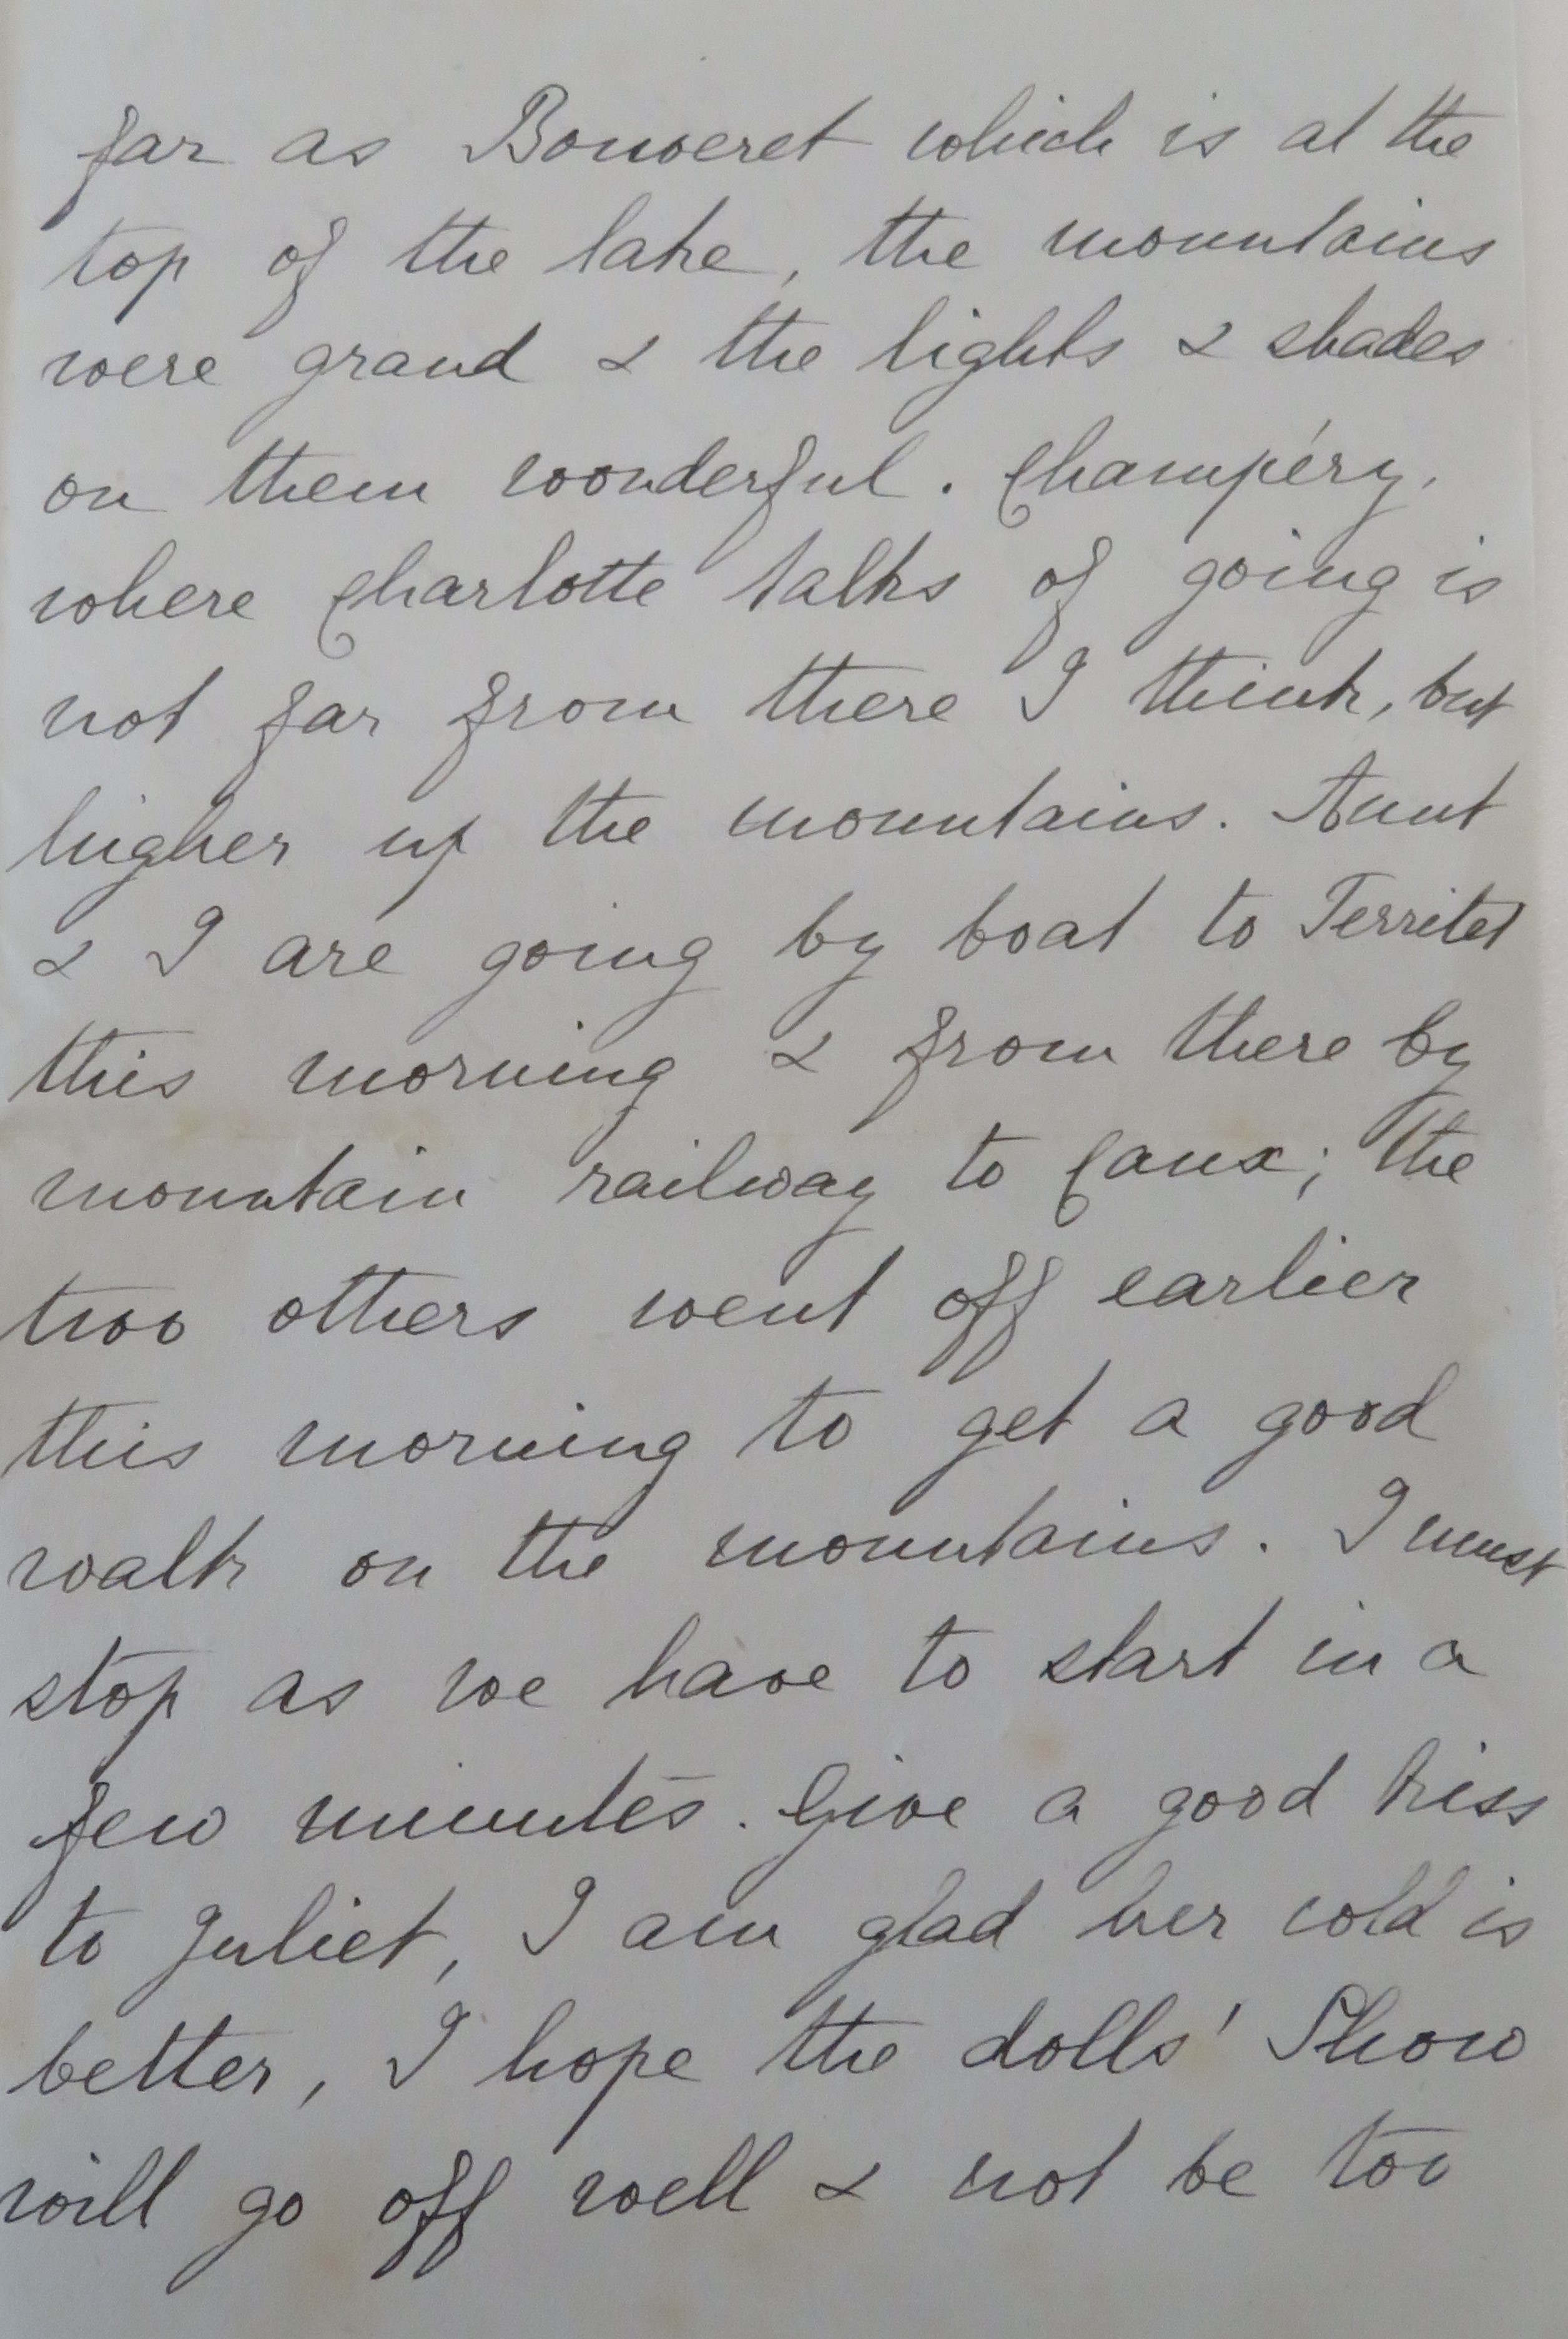 far as Bouveret which is at the
top of the lake, the mountains
were grand & the lights & shades
on them wonderful. Champéry,
where Charlotte talks of going is
not far from there I think, but
higher up the mountains. Aunt
& I are going by boat to Territet
this morning & from there by
mountain railway to Caux; the
two others went off earlier
this morning to get a good
walk on the mountains. I must
stop as we have to start in a
few minutes. Give a good kiss
to Juliet, I am glad her cold is
better, I hope the dolls' Show
will go off well & not be too